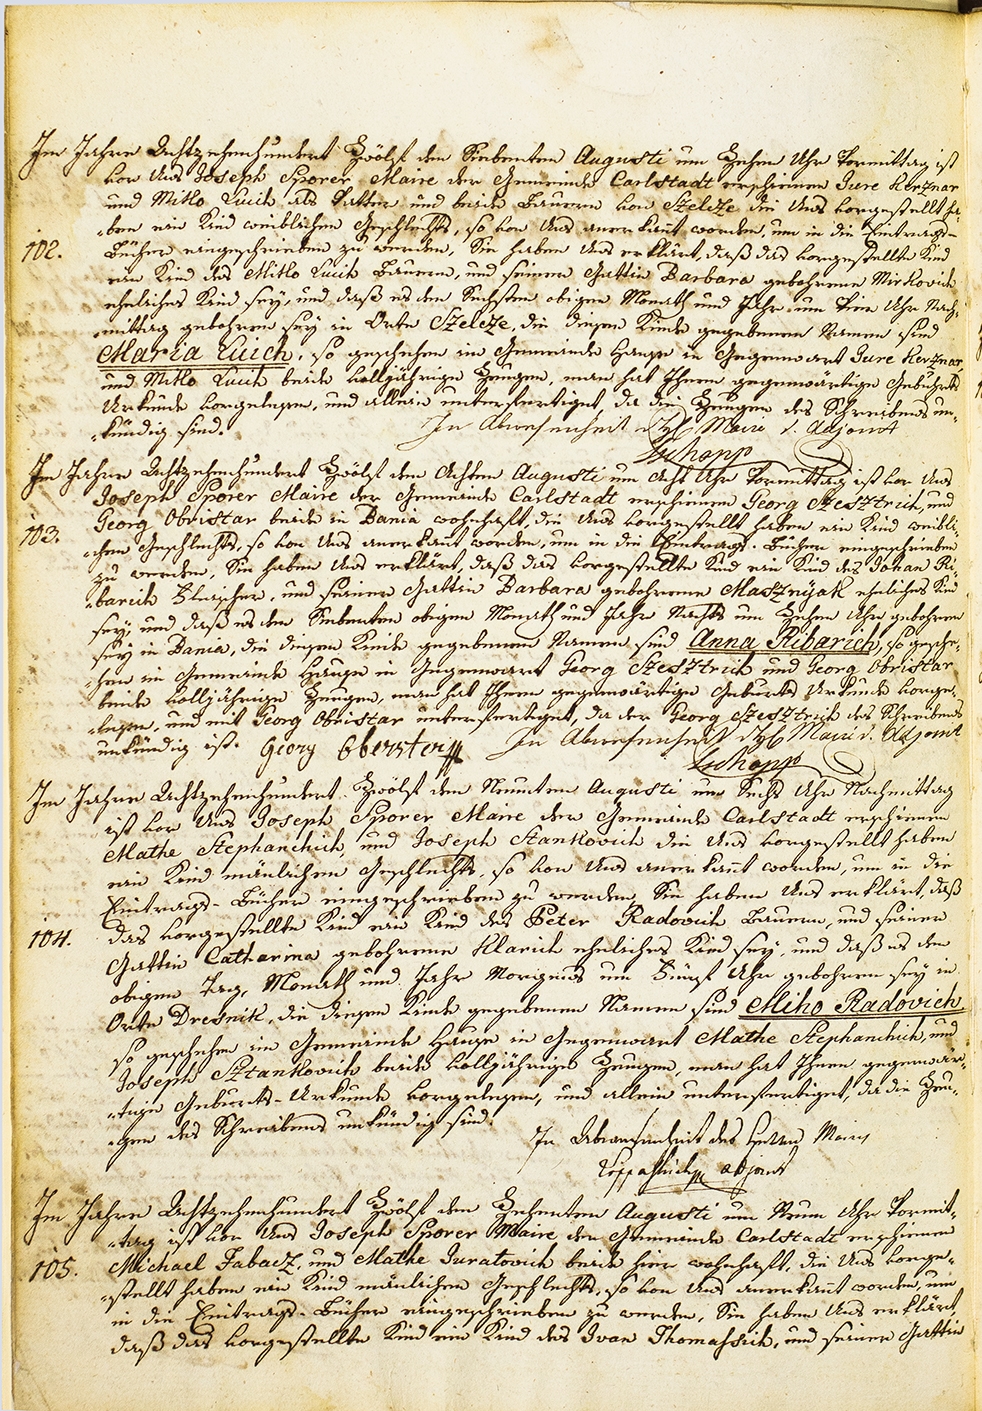 Im Jahre Achtzehenhundert Zwölf den Siebenten Augusti um Zehen Uhr Vormittag ist
vor Uns Joseph Sporer Maire der Gemeinde Carlstadt erschienen Jure Kerznar
und Mitko Lucich als Vatter und beide Bauern von Szelcze die Uns vorgestellt ha-
102.
-ben ein Kind weiblichen Geschlechts, so von Uns anerkant worden, um in die Eintrags-
Bücher eingeschrieben zu werden, Sie haben Uns erklärt, daß das vorgestellte Kind
ein Kind des Mitko Lucich Bauern, und seiner Gattin Barbara gebohrene Mirkovich
eheliches Kind sey, und daß es den Sechsten obigen Monath und Jahr um Vier Uhr Nach-
-mittag gebohren sey in Orte Szelcze, die diesen Kinde gegebenen Namen sind
Maria Lucich, so geschehen im Gemeinde Hause in Gegenwart Jure Kerznar,
und Mitko Lucich beide volljährige Zeugen, man hat Ihnen gegenwärtige Geburts
Urkunde vorgelesen, und allein unterfertiget, da die Zeugen des Schreibens un-
-kündig sind.
In Abwesenheit d. H. Maire d. Adjoint
Im Jahre Achtzehenhundert Zwölf den Achten Augusti um Acht Uhr Vormittag ist vor Uns
Joseph Sporer Maire der Gemeinde Carlstadt erschienen Georg Szesztrich, und
103.
Georg Obristar beide in Bania wohnhaft, die Uns vorgestellt haben ein Kind weibli-
-chen Geschlechts, so von Uns anerkant worden, um in die Eintrags-Bücher eingeschrieben
zu werden, Sie haben Uns erklärt, daß das vorgestellte Kind ein Kind des Johan Ri-
-barich Fleischer, und seiner Gattin Barbara gebohrene Masznyak eheliches Kind
sey, und daß es den Siebenten obigen Monath und Jahr Nachts um Zehen Uhr gebohren
sey in Bania, die diesen Kinde gegebenen Namen sind Anna Ribarich, so gesche-
-hen im Gemeinde Hause in Gegenwart Georg Szesztrich und Georg Obristar
beide volljährige Zeugen, man hat Ihnen gegenwärtige Geburts Urkunde vorge-
-lesen, und mit Georg Obristar unterfertiget, da der Georg Szesztrich des Schreibens
unkündig ist. Georg Oberster
In Abwesenheit d. H. Maire d. Adjoint
Im Jahre Achtzehenhundert Zwölf den Neunten Augusti um Sechs Uhr Nachmittag
ist vor Uns Joseph Sporer Maire der Gemeinde Carlstadt erschienen
Mathe Stephanchich, und Joseph Stankovich die Uns vorgestellt haben
ein Kind mänlichen Geschlechts, so von Uns anerkant worden, um in die
Eintrags-Bücher eingeschrieben zu werden, Sie haben Uns erklärt, daß
104.
das vorgestellte Kind ein Kind des Peter Radovich Bauern, und seiner
Gattin Catharina gebohrene Klarich eheliches Kind sey, und daß es den
obigen Tag, Monath und Jahr Morgens um Fünf Uhr gebohren sey in
Orte Dresnik, die diesen Kinde gegebenen Namen sind Miho Radovich
so geschehen im Gemeinde Hause in Gegenwart Mathe Stephanchich, und
Joseph Sztankovich beide volljährige Zeugen, man hat Ihnen gegenwär-
-tige Geburts-Urkunde vorgelesen, und allein unterfertiget, da die Zeu-
-gen des Schreibens unkündig sind.
In Abwesenheit des Herrn Maires
adjoint
Im Jahre Achtzehenhundert Zwölf den Zehenten Augusti um Neun Uhr Vormit-
-tag ist vor Uns Joseph Sporer Maire der Gemeinde Carlstadt erschienen
105.
Michael Fabacz, und Mathe Juratovich beide hier wohnhaft, die Uns vorge-
-stellt haben ein Kind mänlichen Geschlechts, so von Uns anerkant worden, um
in die Eintrags-Bücher eingeschrieben zu werden, Sie haben Uns erklärt,
daß das vorgestellte Kind ein Kind des Ivan Thomassich, und seiner Gattin